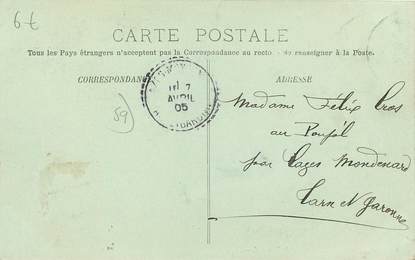 6€
CARTE POSTALE
Tous les Pays étrangers n'acceptent pas la Correspondance au recto de renseigner à la Poste.
CORRESPONDANCE
ADRESSE
7
AVRIL
05
59
Madame Félix Cros
au Poujol
par Cazes Mondenard
Tarn et Garonne